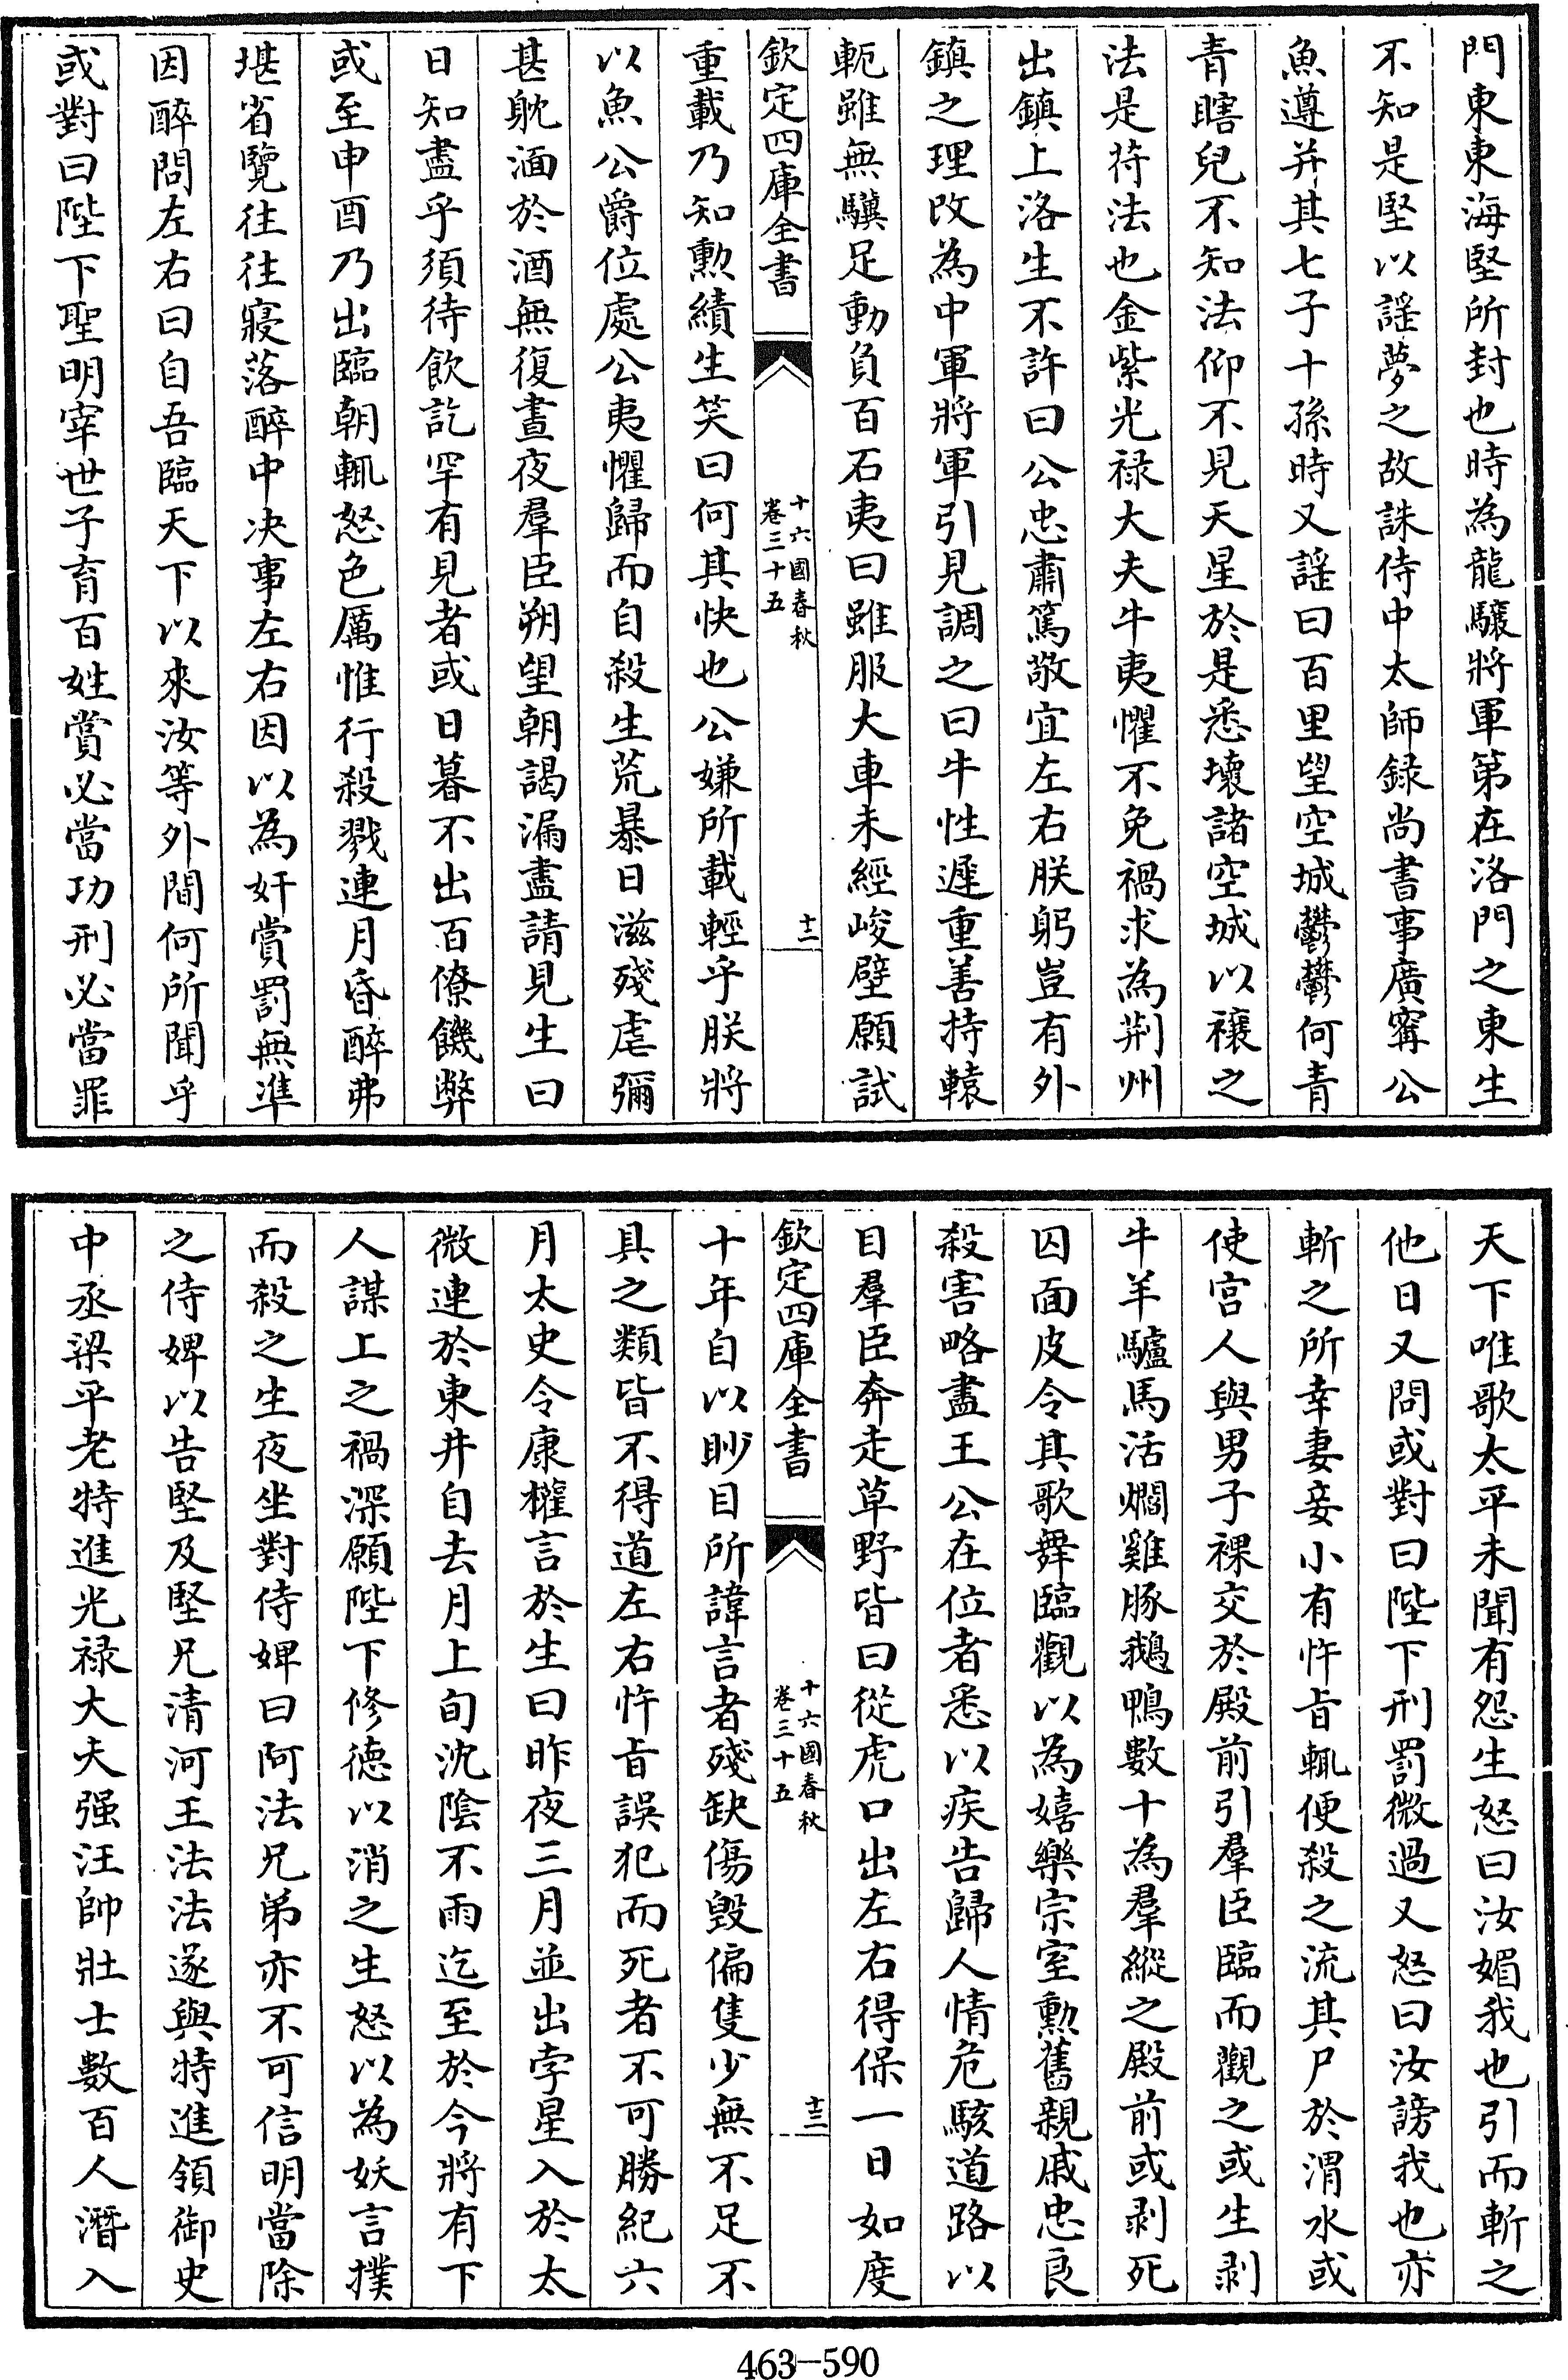 門東東海堅所封也時為龍驤將軍第在洛門之東生
不知是堅以謡夢之故誅侍中太師録尚書事廣寗公
魚遵并其七子十孫時又謡曰百里望空城鬱鬱何青
青瞎兒不知法仰不見天星於是悉壊諸空城以禳之
法是苻法也金紫光禄大夫牛夷懼不免禍求為荆州
出鎮上洛生不許曰公忠肅篤敬宜左右朕躬豈有外
鎮之理改為中軍將軍引見調之曰牛性遲重善持轅
軛雖無驥足動負百石夷曰雖服大車未經峻壁願試
欽定四庫全書
十六國春秋
卷三十五
十二
重載乃知勲績生笑曰何其快也公嫌所載輕乎朕將
以魚公爵位處公夷懼歸而自殺生荒暴日滋殘虐彌
甚躭湎於酒無復晝夜羣臣朔望朝謁漏盡請見生曰
日知盡乎須待飲訖罕有見者或日暮不出百僚饑弊
或至申酉乃出臨朝輒怒色厲惟行殺戮連月昏醉弗
堪省覽往往寢落醉中决事左右因以為奸賞罰無準
因醉問左右曰自吾臨天下以來汝等外間何所聞乎
或對曰陛下聖明宰世子育百姓賞必當功刑必當罪
天下唯歌太平未聞有怨生怒曰汝媚我也引而斬之
他日又問或對曰陛下刑罰微過又怒曰汝謗我也亦
斬之所幸妻妾小有忤㫖輒便殺之流其尸於渭水或
使宫人與男子裸交於殿前引羣臣臨而觀之或生剥
牛羊驢馬活爓雞豚鵝鴨數十為羣縱之殿前或剥死
囚面皮令其歌舞臨觀以為嬉樂宗室勲舊親戚忠良
殺害略盡王公在位者悉以疾告歸人情危駭道路以
目羣臣奔走草野皆曰從虎口出左右得保一日如度
欽定四庫全書
十六國春秋
卷三十五
十三
十年自以眇目所諱言者殘缺傷毁偏隻少無不足不
具之類皆不得道左右忤㫖誤犯而死者不可勝紀六
月太史令康權言於生曰昨夜三月並出孛星入於太
微連於東井自去月上旬沈陰不雨迄至於今將有下
人謀上之禍深願陛下修德以消之生怒以為妖言撲
而殺之生夜坐對侍婢曰阿法兄弟亦不可信明當除
之侍婢以告堅及堅兄清河王法法遂與特進領御史
中丞梁平老特進光禄大夫强汪帥壯士數百人潛入
463-590